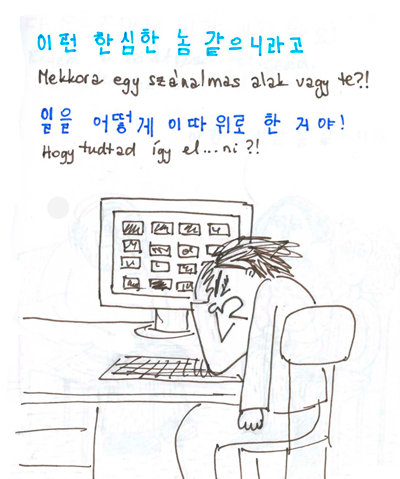 이런 한심한 놈 같으니라고
Mekkora egy szánalmas alak vagy te?!
일을 어떻게 이따위로 한 거야!
Hogy tudtad így el...ni?!